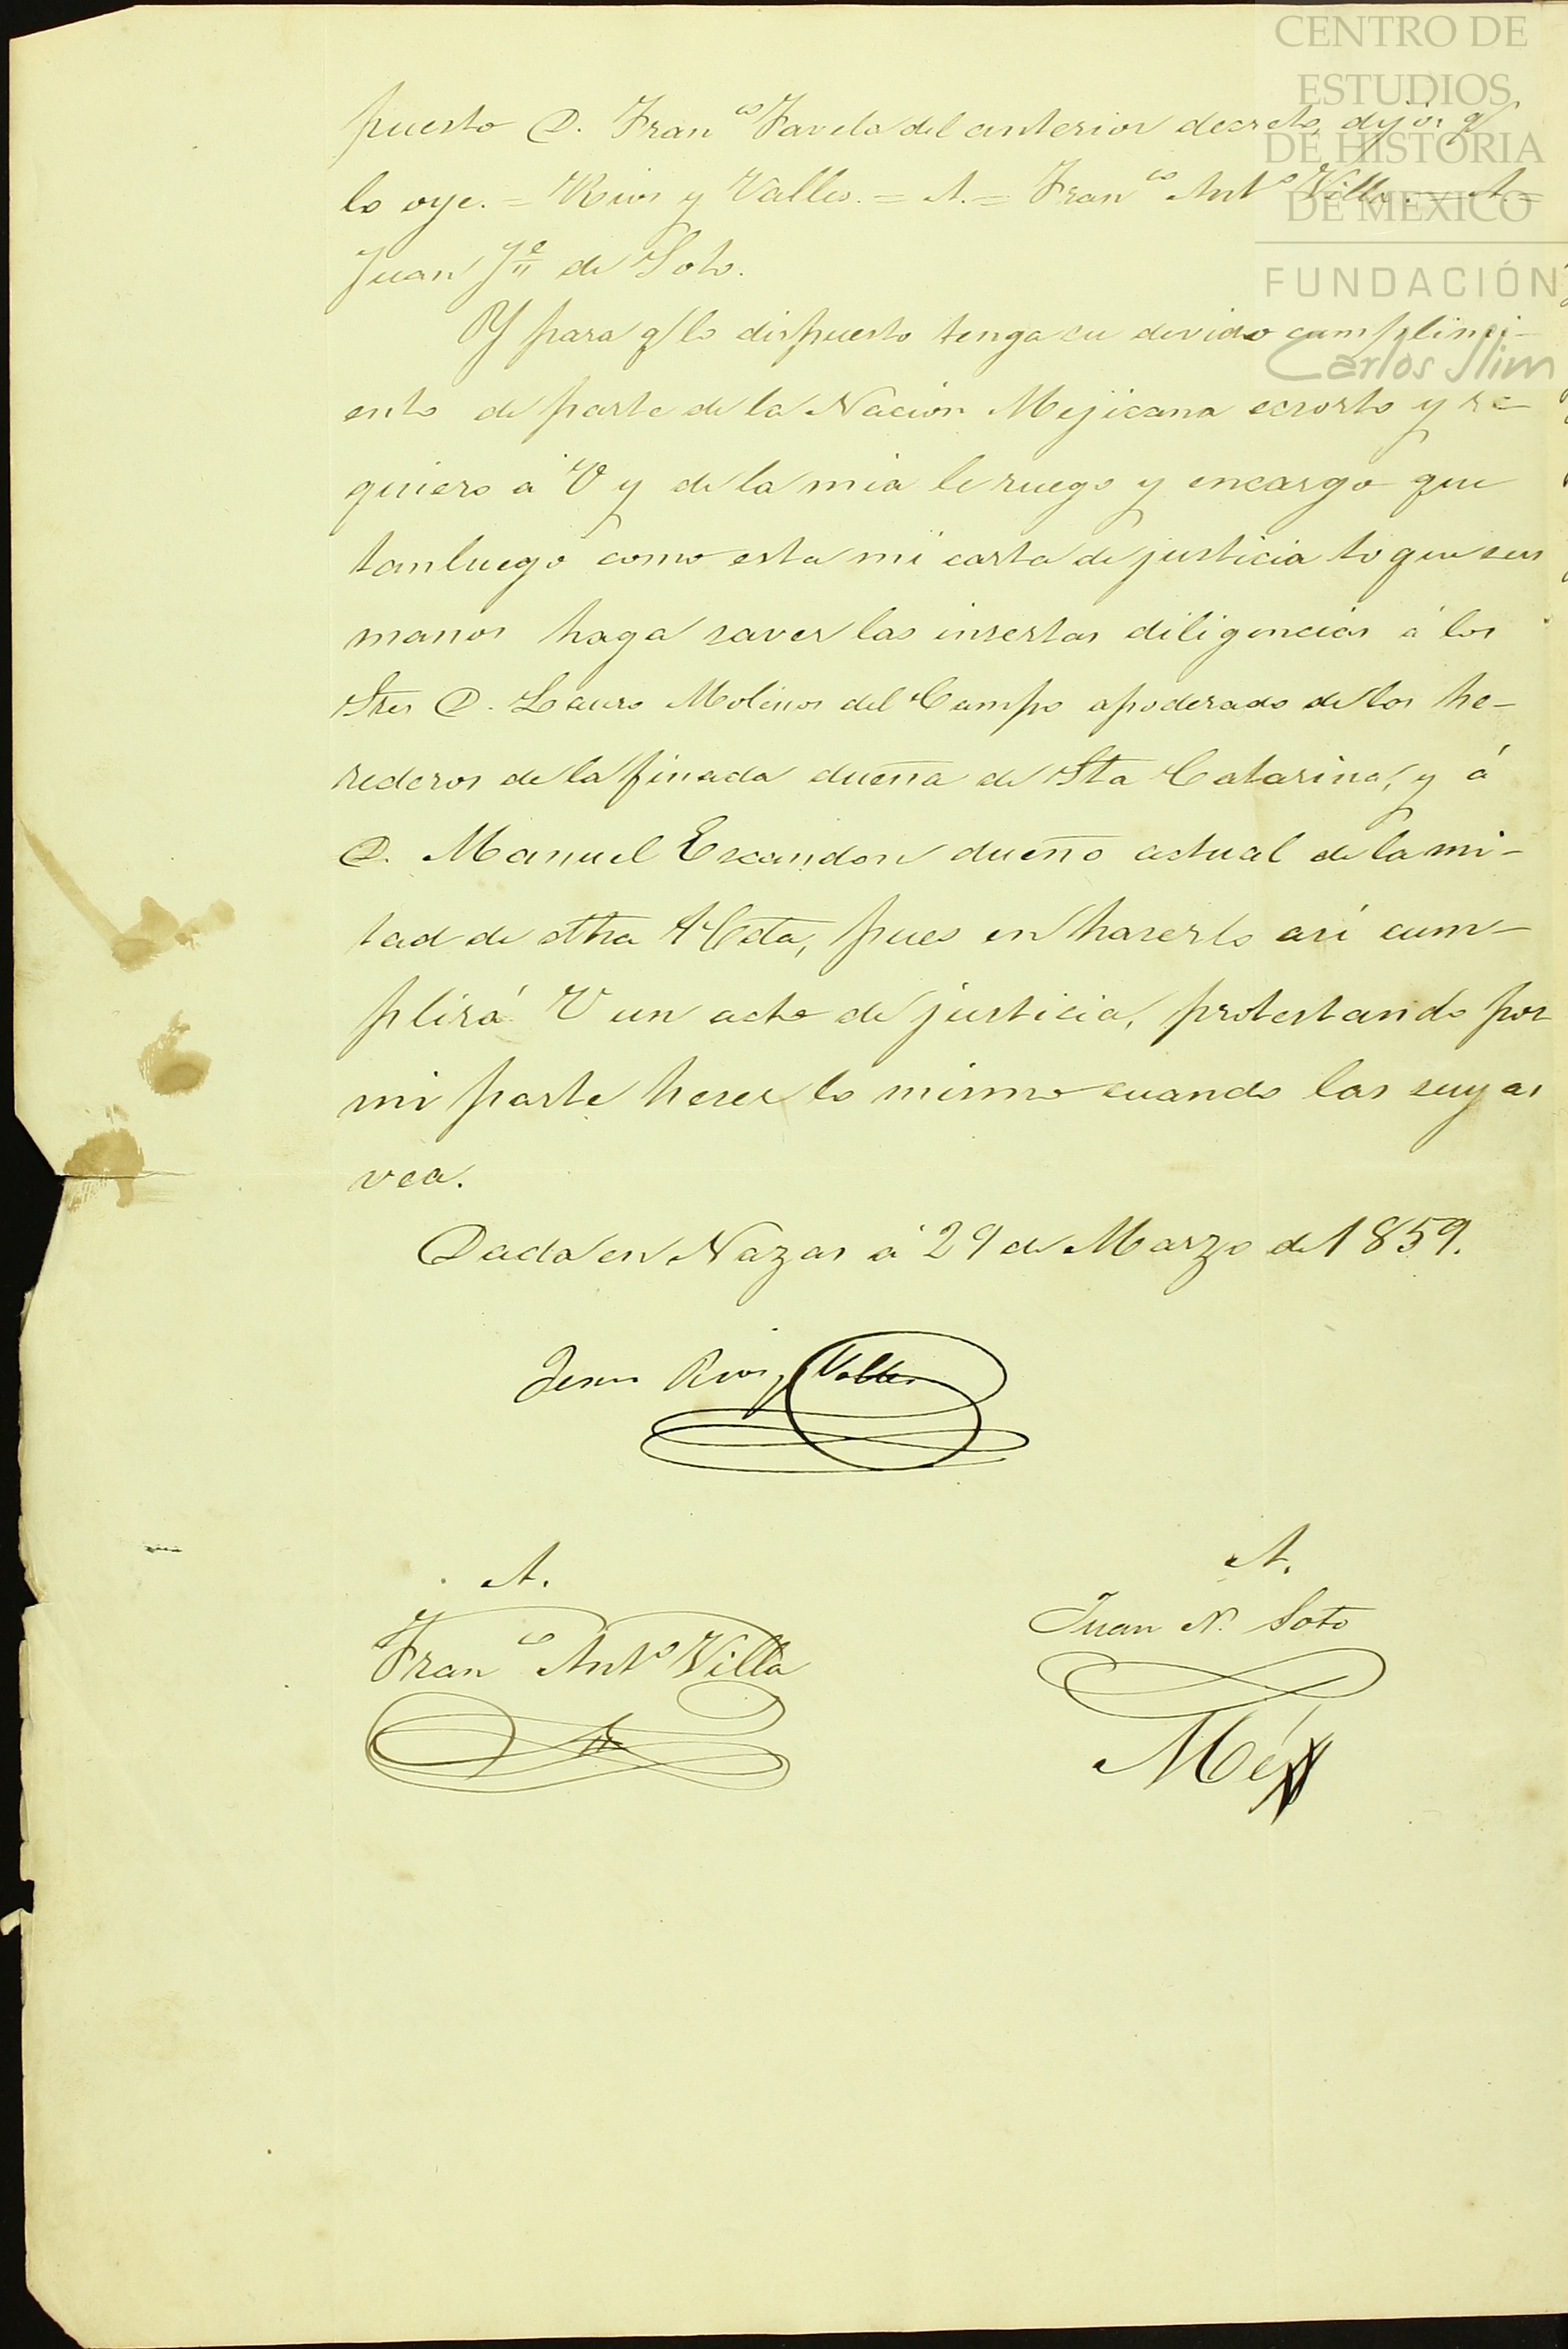 CENTRO DE
ESTUDIOS
DE HISTORIA
DE MÉXICO
FUNDACIÓN
Carlos Slim
puesto D. Fran.co Favela del anterior decreto, dijo: q.
lo oye. = Rios y Valles. = A. = Fran.co Ant.o Villa. = A. =
Juan J.e de Soto.
Y para q. lo dispuesto tenga su devido cumplimi-
ento de parte de la Nacion Mejicana ecsorto y re-
quiero á V y de la mia le ruego y encargo que
tanluego como esta mi carta de justicia toque sus
manos haga saver las insertas diligencias á los
Sres D. Lauro Molinos del Campo apoderado de los he-
rederos de la finada dueña de Sta Catarina, y á
D. Manuel Escandon dueño actual de la mi-
tad de dha Hcda, pues en haserlo asi cum-
plirá V un acto de justicia, protestando por
mi parte hacer lo mismo cuando las suyas
vea.
Dada en Nazas á 29 de Marzo de 1859.
Jesus Rios y Valles
A.
Fran.co Ant.o Villa
A.
Juan N. Soto
Méx